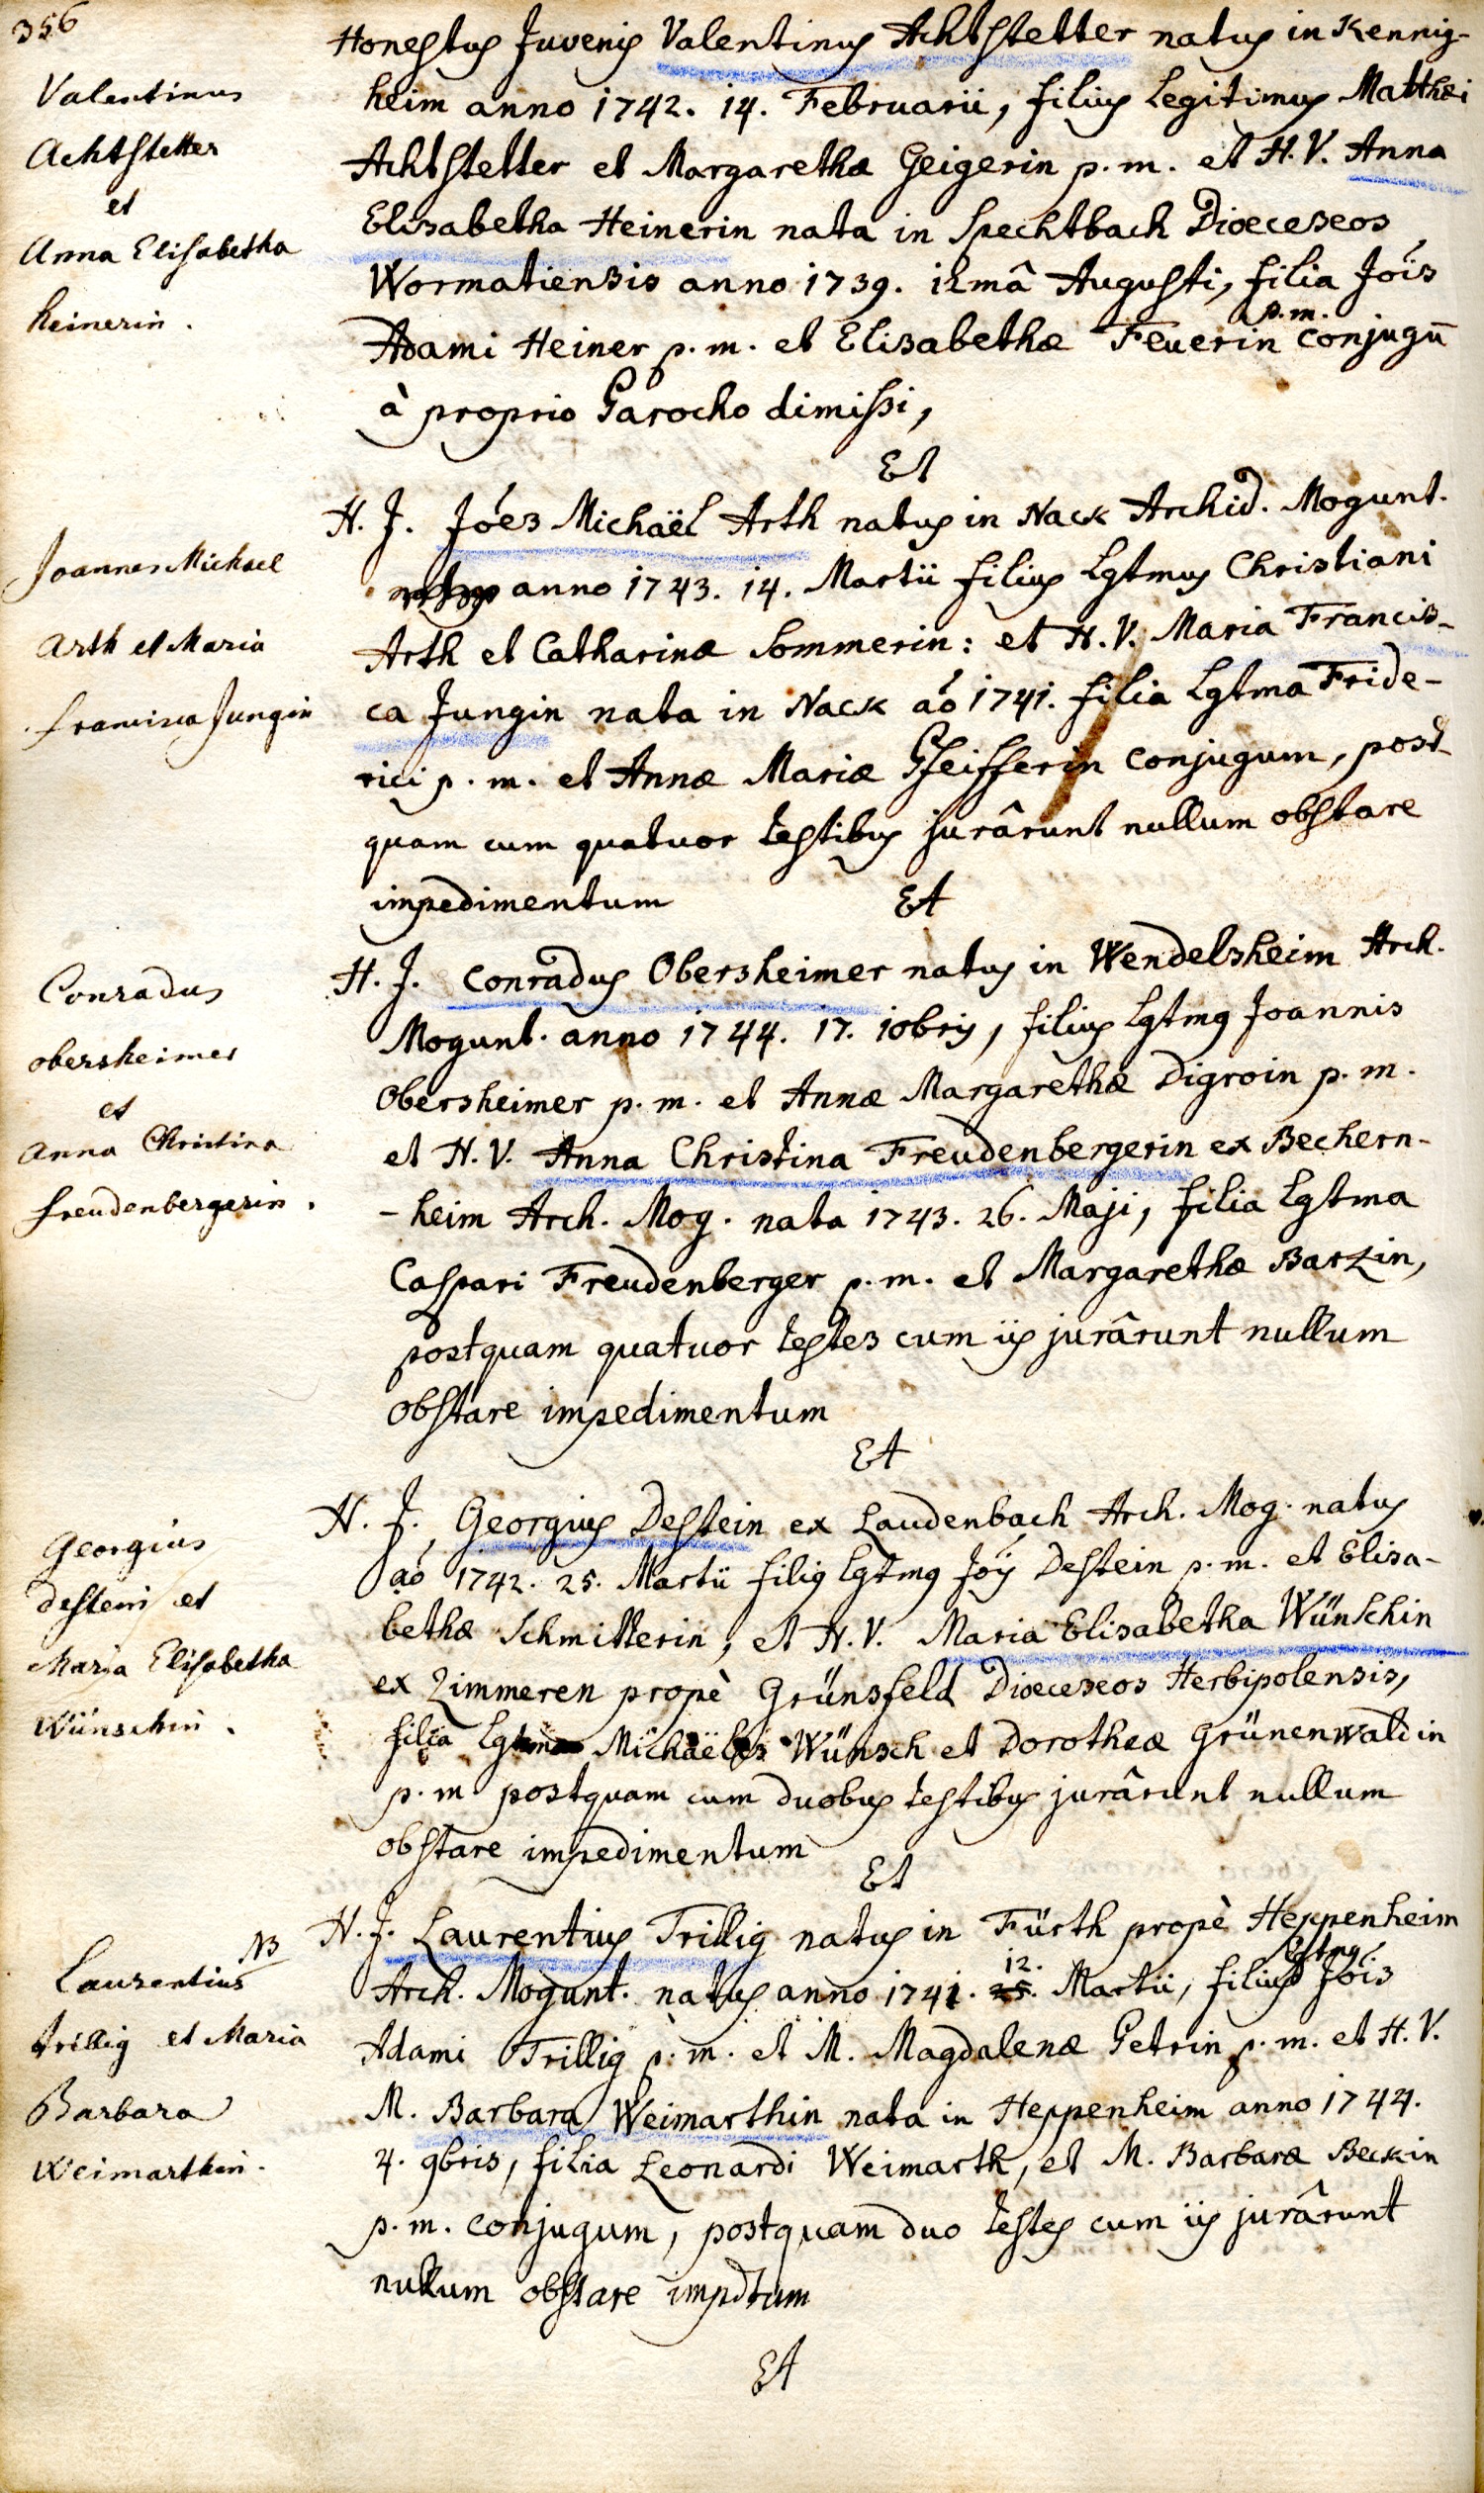 356
Valentinus
Achtstetter
et
Anna Elisabetha
heinerin.
Honestus Juvenis Valentinus Achtstetter natus in Kennig-
heim anno 1742. 14. Februarii, filius legitimus Matthæi
Achtstetter et Margarethæ Geigerin p. m. et H. V. Anna
Elisabetha Heinerin nata in Spechtbach Dioeceseos
Wormatiensis anno 1739. 12mâ Augusti, filia Jois
Adami Heiner p. m. et Elisabethæ Feuerin p. m. conjugū
à proprio Parocho dimissi,
Et
Joannes Michael
Arth et Maria
francisca Jungin
H. J. Jóes Michaël Arth natus in Nack Archid. Mogunt.
natus anno 1743. 14. Martii filius Lgtmus Christiani
Arth et Catharinæ Sommerin: et H. V. Maria Francis-
ca Jungin nata in Nack aó 1741. filia Lgtma Fride-
rici p. m. et Annæ Mariæ Pfeifferin conjugum, post-
quam cum quatuor testibus jurârunt nullum obstare
impedimentum
Et
Conradus
obersheimer
et
Anna Christina
freudenbergerin.
H. J. Conradus Obersheimer natus in Wendelsheim Arch.
Mogunt. anno 1744. 17. iobris, filius Lgtmq Joannis
Obersheimer p. m. et Annæ Margarethæ Digroin p. m.
et H. V. Anna Christina Freudenbergerin ex Bechern-
-heim Arch. Mog. nata 1743. 26. Maji, filia Lgtma
Caspari Freudenberger p. m. et Margarethæ Barzin,
postquam quatuor testes cum iis jurârunt nullum
obstare impedimentum
Et
Georgius
destein et
Maria Elisabetha
Wünschin.
H. J. Georgius Destein ex Laudenbach Arch. Mog. natus
aó 1742. 25. Martii filiq Lgtmq Jois Destein p. m. et Elisa-
bethæ Schmitterin, et H. V. Maria Elisabetha Wünschin
ex Zimmeren propè Grünsfeld Dioeceseos Herbipolensis,
filia Lgtma Michaëlis Wünsch et Dorotheæ Grünenwaldin
p. m postquam cum duobus testibus jurârunt nullum
obstare impedimentum
Et
NB
Laurentius
trillig et Maria
Barbara
Weimarthin.
H. J. Laurentius Trillig natus in Fürth propè Heppenheim
Arch. Mogunt. natus anno 1741. 25. 12. Martii, filius Lgtmq Jois
Adami Trillig p. m. et M. Magdalenæ Petrin p. m. et H. V.
M. Barbara Weimarthin nata in Heppenheim anno 1744.
4. 9bris, filia Leonardi Weimarth, et M. Barbaræ Beckin
p. m. conjugum, postquam duo testes cum iis jurârunt
nullum obstare impdtum
Et